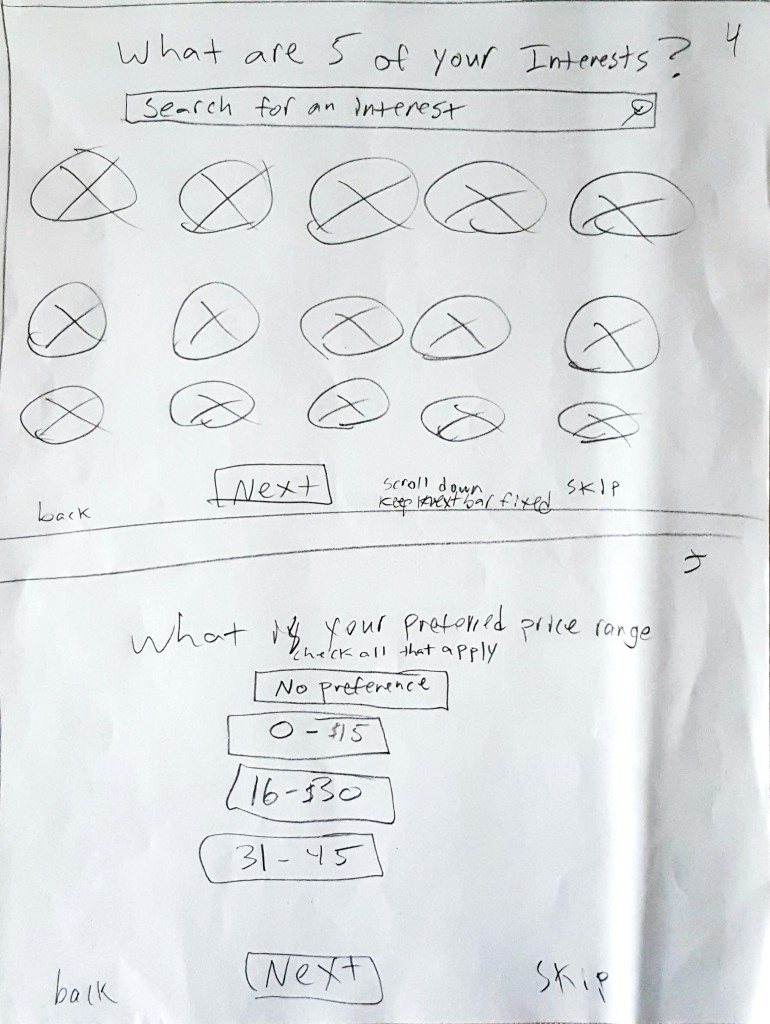 4
What are 5 of your Interests?
Search for an interest
Next
Scroll down
keep next bar fixed
SKIP
back
5
What is your preferred price range
check all that apply
No preference
0 - $15
16 - $30
31 - 45
back
Next
SKip